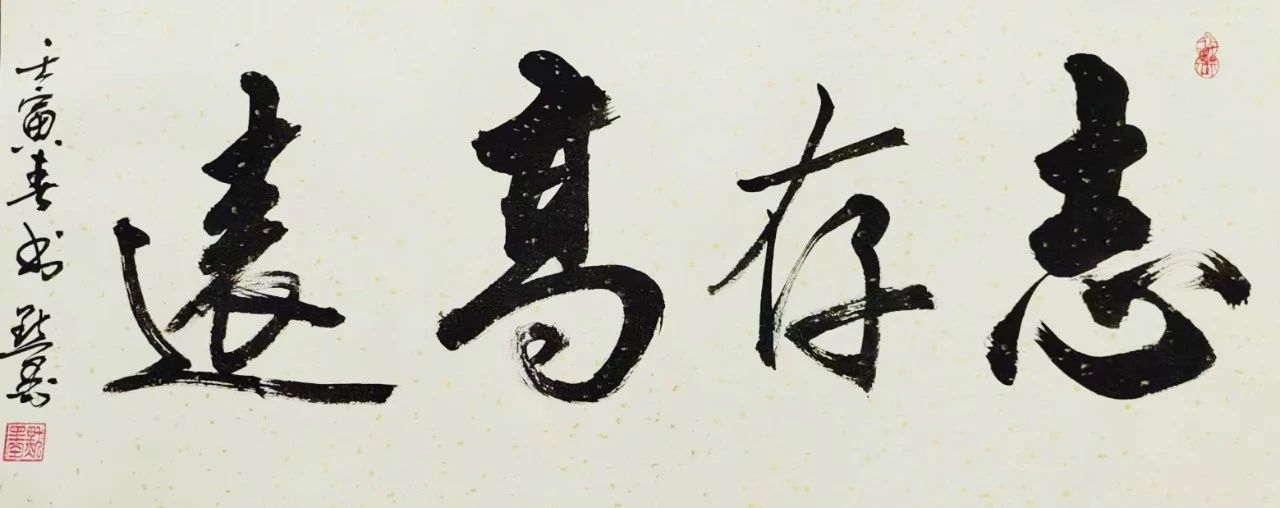 志存高遠
壬寅春书